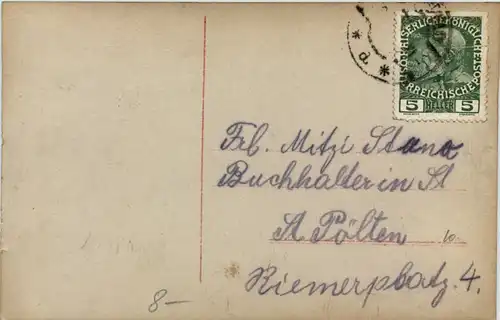 KAISERLICHE KÖNIGLICHE
ÖSTERREICHISCHE
5 HELLER 5
d.
Frl. Mitzi Stana
Buchhalterin St
St Pölten
Riemerplatz. 4.
8—